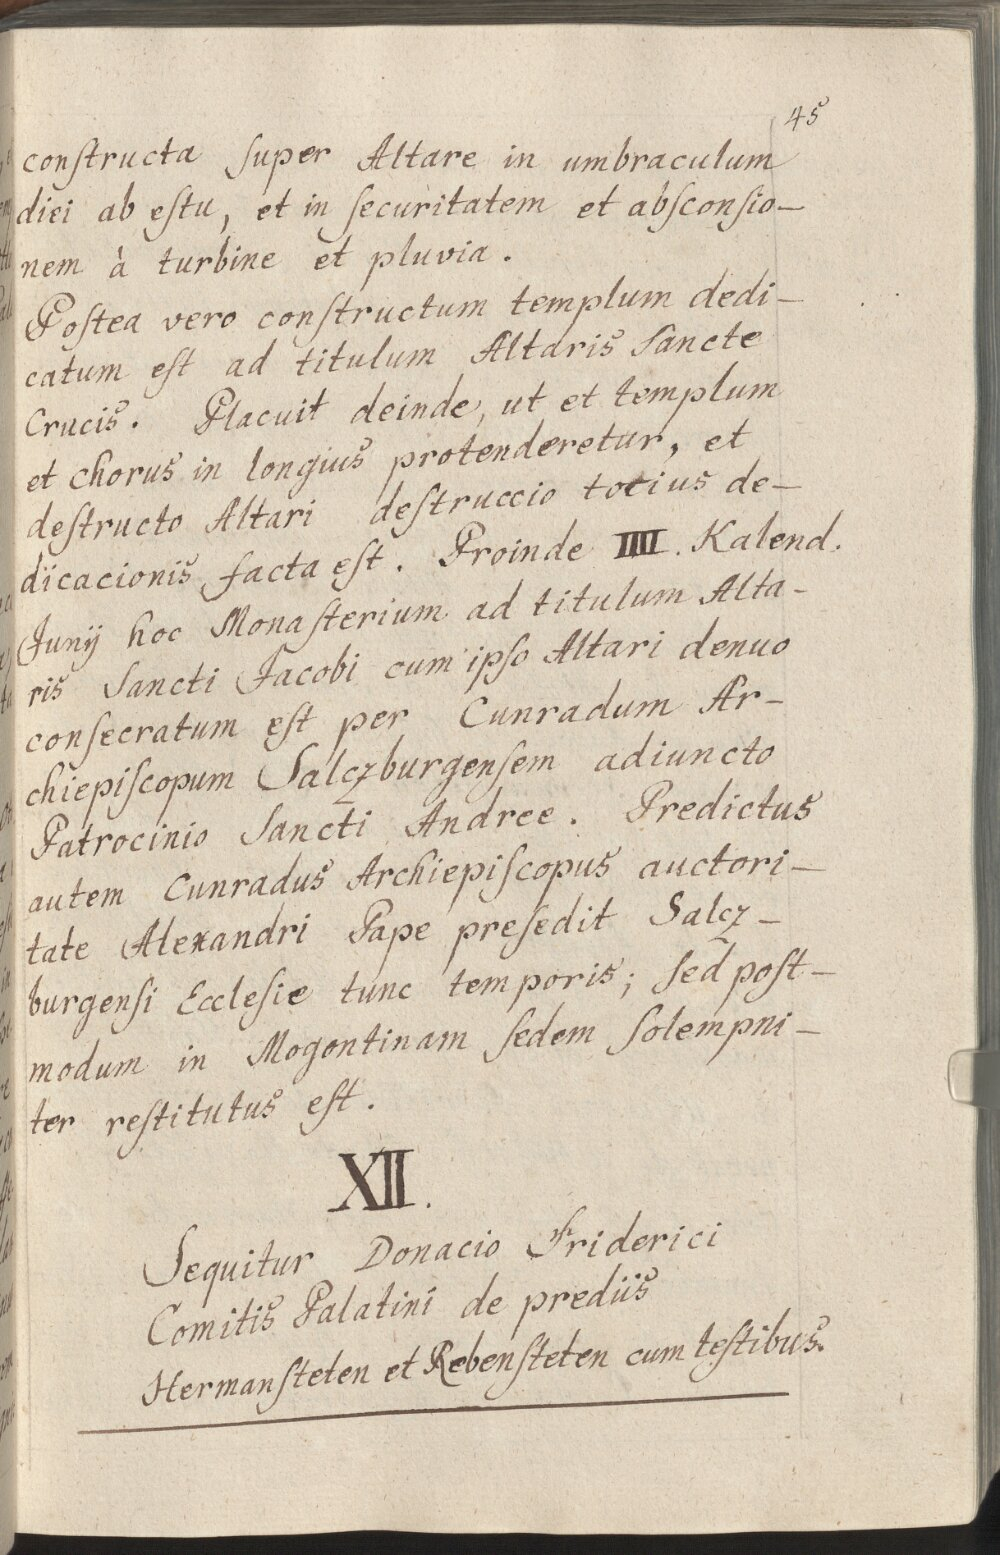 45
conſtructa ſuper Altare in umbraculum
diei ab eſtu, et in ſecuritatem et abſconſio-
nem à turbine et pluvia.
Poſtea vero conſtructum templum dedi-
catum eſt ad titulum Altaris Sancte
Crucis. Placuit deinde, ut et templum
et chorus in longius protenderetur, et
deſtructo Altari deſtruccio totius de-
dicacionis facta eſt. Proinde IIII. Kalend.
Junÿ hoc Monaſterium ad titulum Alta-
ris Sancti Jacobi cum ipſo Altari denuo
conſecratum eſt per Cunradum Ar-
chiepiſcopum Salczburgenſem adiuncto
Patrocinio Sancti Andree. Predictus
autem Cunradus Archiepiſcopus auctori-
tate Alexandri Pape preſedit Salcz-
burgenſi Eccleſie tunc temporis; ſed poſt-
modum in Mogontinam ſedem ſolempni-
ter reſtitutus eſt.
XII.
Sequitur Donacio Friderici
Comitis Palatini de prediis
Hermanſteten et Rebenſteten cum teſtibus.